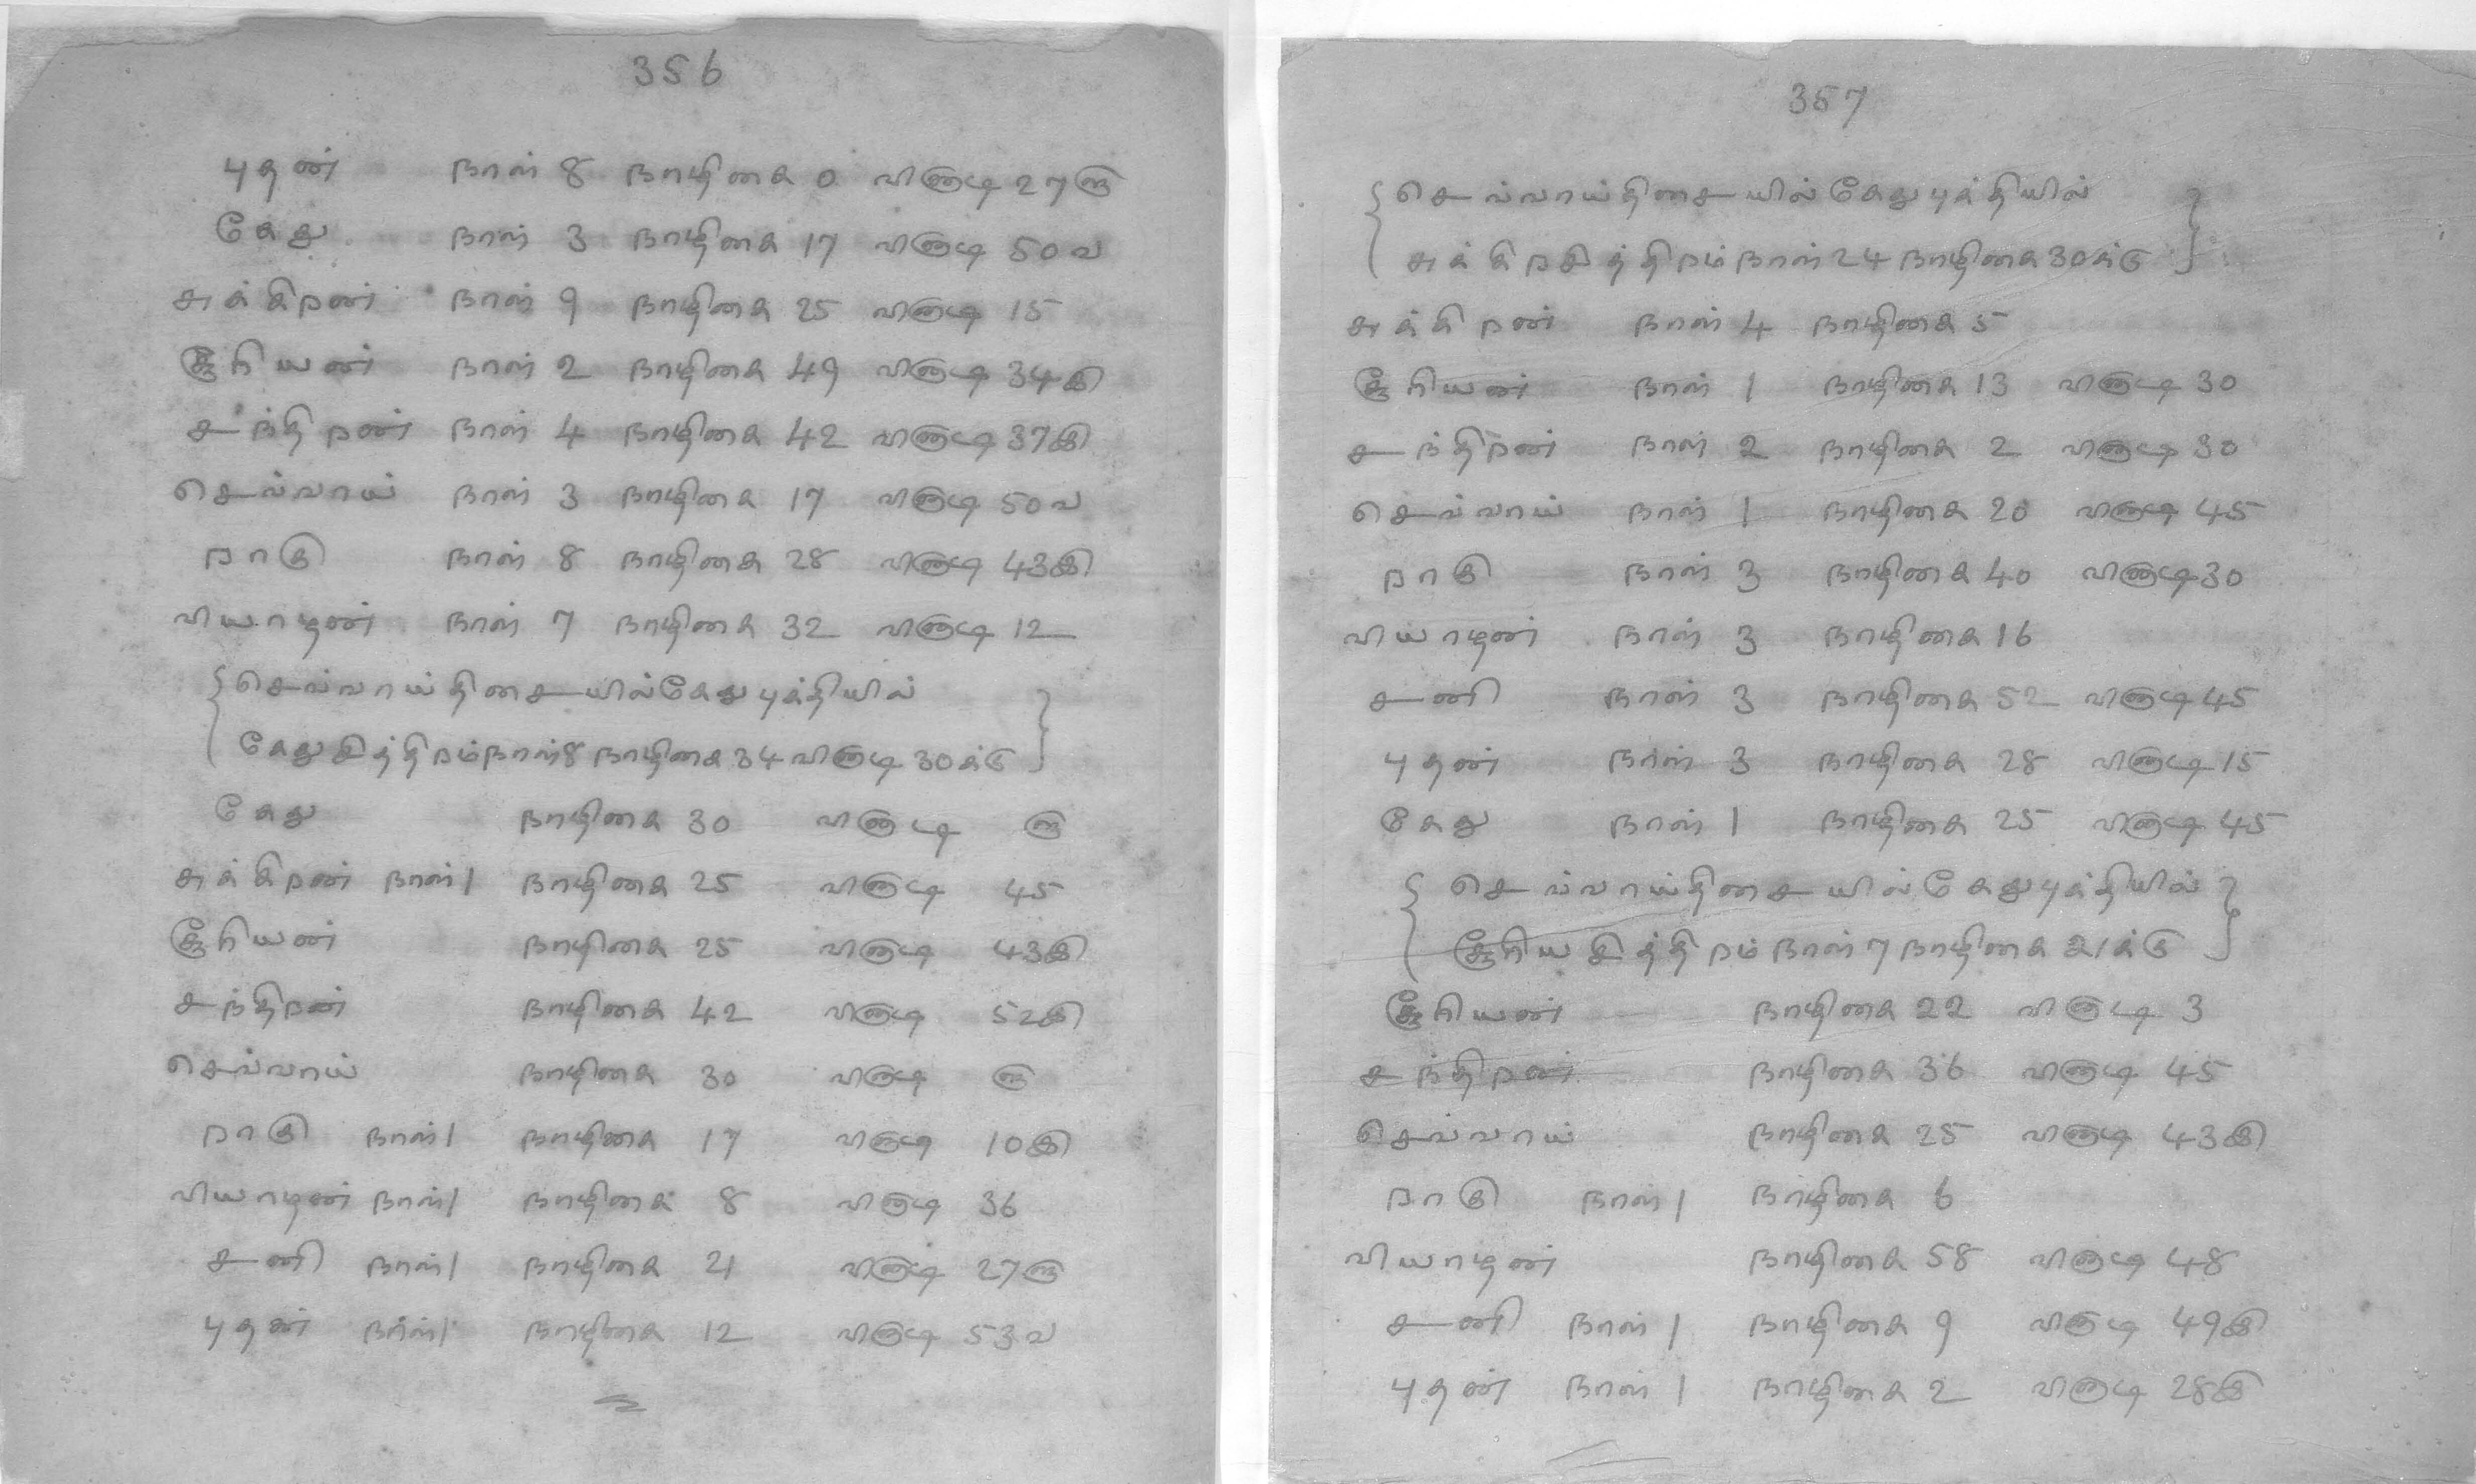 356
புதன் நாள் 8 நாழிகை 0 வினாடி 27𑿓
கேது நாள் 3 நாழிகை 17 வினாடி 50வ
சுக்கிறன் நாள் 9 நாழிகை 25 வினாடி 15
சூரியன் நாள் 2 நாழிகை 49 வினாடி 34𑿑
சந்திறன் நாள் 4 நாழிகை 42 வினாடி 37𑿑
செவ்வாய் நாள் 3 நாழிகை 17 வினாடி 50வ
றாகு நாள் 8 நாழிகை 28 வினாடி 43𑿑
வியாழன் நாள் 7 நாழிகை 32 வினாடி 12
{செவ்வாய்திசையில்கேதுபுக்தியில்
கேதுசித்திறம்நாள்8 நாழிகை34 வினாடி 30க்கு}
கேது நாழிகை 30 வினாடி 𑿓
சுக்கிறன் நாள் 1 நாழிகை 25 வினாடி 45
சூரியன் நாழிகை 25 வினாடி 43𑿑
சந்திறன் நாழிகை 42 வினாடி 52𑿑
செவ்வாய் நாழிகை 30 வினாடி 𑿓
றாகு நாள் 1 நாழிகை 17 வினாடி 10𑿑
வியாழன் நாள் 1 நாழிகை 8 வினாடி 36
சனி நாள் 1 நாழிகை 21 வினாடி 27𑿓
புதன் நாள் 1 நாழிகை 12 வினாடி 53வ
357
{செவ்வாய்திசையில்கேதுபுக்தியில்
சுக்கிறசித்திறம்நாள்24 நாழிகை30க்கு}
சுக்கிறன் நாள் 4 நாழிகை 5
சூரியன் நாள் 1 நாழிகை 13 வினாடி 30
சந்திறன் நாள் 2 நாழிகை 2 வினாடி 30
செவ்வாய் நாள் 1 நாழிகை 20 வினாடி 45
றாகு நாள் 3 நாழிகை 40 வினாடி 30
வியாழன் நாள் 3 நாழிகை 16
சனி நாள் 3 நாழிகை 52 வினாடி 45
புதன் நாள் 3 நாழிகை 28 வினாடி 15
கேது நாள் 1 நாழிகை 25 வினாடி 45
{செவ்வாய்திசையில்கேதுபுக்தியில்
சூரியசித்திறம்நாள்7 நாழிகை 21க்கு}
சூரியன் நாழிகை 22 வினாடி 3
சந்திறன் நாழிகை 36 வினாடி 45
செவ்வாய் நாழிகை 25 வினாடி 43𑿑
றாகு நாள் 1 நாழிகை 6
வியாழன் நாழிகை 58 வினாடி 48
சனி நாள் 1 நாழிகை 9 வினாடி 49𑿑
புதன் நாள் 1 நாழிகை 2 வினாடி 28𑿑